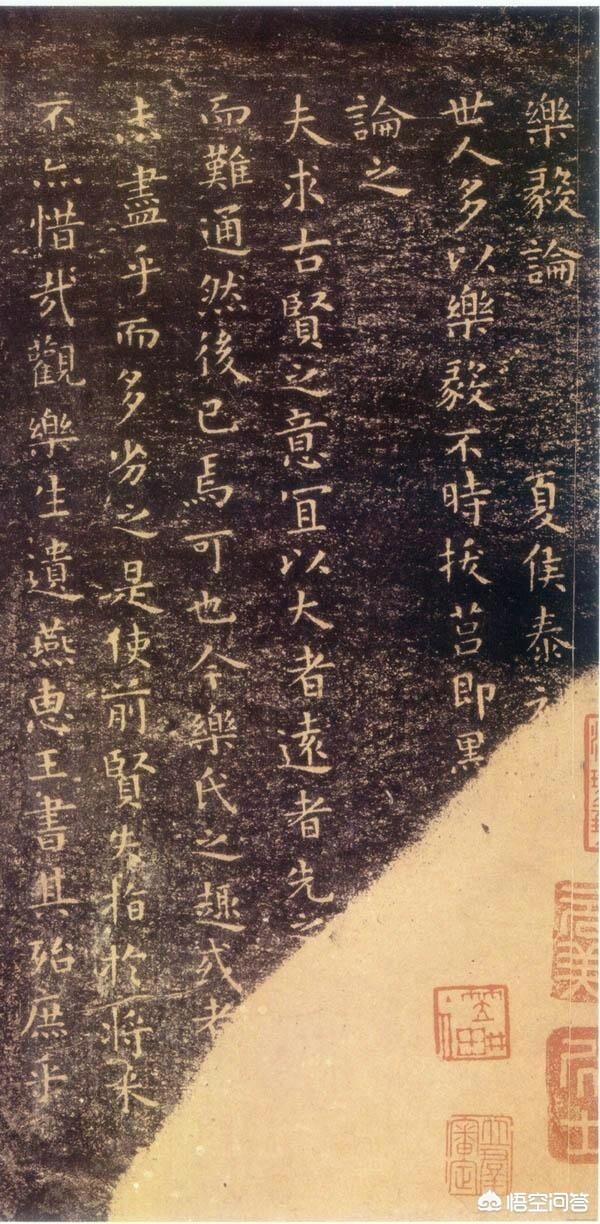 樂毅論 夏侯泰
世人多以樂毅不時拔莒即墨
論之
夫求古賢之意宜以大者遠者先之
而難通然後已焉可也今樂氏之趣或者
志盡乎而多劣之是使前賢失指於將来
不亦惜哉觀樂生遺燕惠王書其殆庶乎
悟空问答